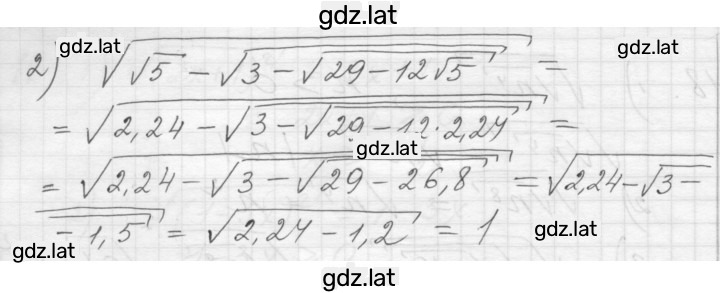 gdz.lat
gdz.lat gdz.lat
2) √(√5 − √(3 − √(29 − 12√5))) =
= √(2,24 − √(3 − √(29 − 12·2,24))) =
gdz.lat
= √(2,24 − √(3 − √(29 − 26,8))) = √(2,24 − √(3 −
− 1,5)) = √(2,24 − 1,2) = 1
gdz.lat gdz.lat
gdz.lat